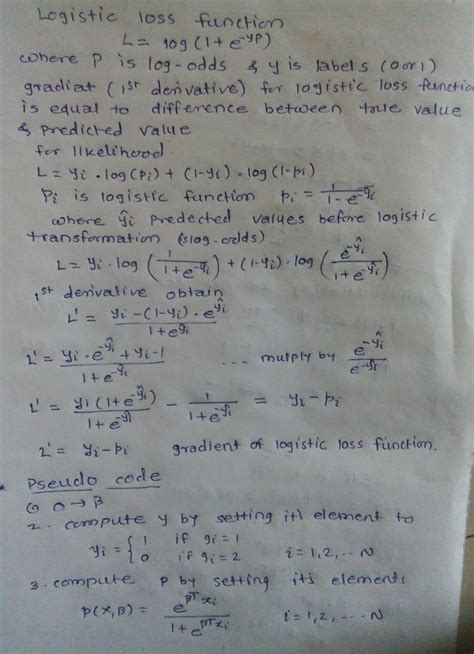 Logistic loss function
L = log(1+e^-yp)
where P is log-odds & y is labels (0 or 1)
gradiat (1st derivative) for logistic loss function
is equal to difference between true value
& predicted value
for likelihood.
L = yi · log(pi) + (1-yi) · log(1-pi)
Pi is logistic function pi = 1/(1-e^-ŷi)
where ŷi predected values before logistic
transformation (log-odds)
L = yi · log(1/(1+e^-ŷi)) + (1-yi) · log(e^-ŷi/(1+e^-ŷi))
1st derivative obtain
L' = (yi-(1-yi) · e^ŷi)/(1+e^ŷi)
L' = (yi · e^-ŷi + yi-1)/(1+e^-ŷi) ... mulply by e^-ŷi/e^-ŷi
L' = yi(1+e^-ŷi)/(1+e^-ŷi) - 1/(1+e^-ŷi) = yi-pi
L' = yi-pi gradient of logistic loss function.
Pseudo code
0 → β
2. compute y by setting it's element to
yi = { 1 if gi = 1
0 if gi = 2 i = 1,2, ... N
3. compute p by setting its elements
p(x,β) = e^βTxi/(1+e^βTxi) i = 1,2, ... N